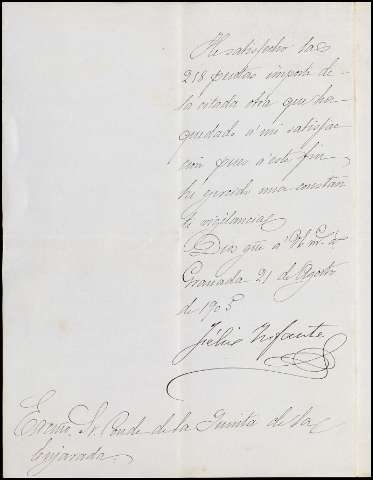 He satisfecho las
218 pesetas importe de
la citada obra que ha
quedado á mi satisfac
cion pues á este fin
he ejercido una constan
te vigilancia
Dios gue á V. m. a.
Granada 21 de Agosto
de 1905
Infante
Excmo. Sr. Conde de la Quinta de la
Enjarada.